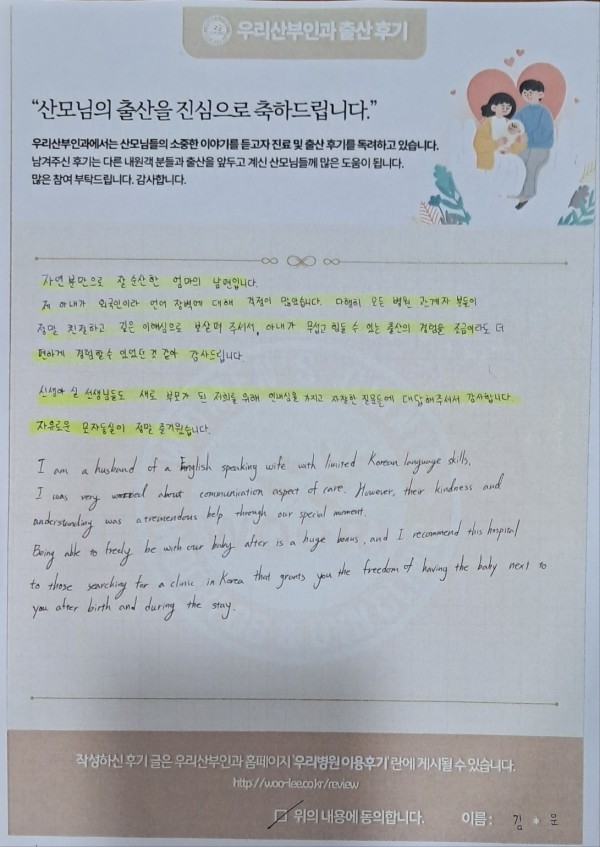 우리산부인과 출산 후기
“산모님의 출산을 진심으로 축하드립니다.”
우리산부인과에서는 산모님들의 소중한 이야기를 듣고자 진료 및 출산 후기를 독려하고 있습니다.
남겨주신 후기는 다른 내원객 분들과 출산을 앞두고 계신 산모님들께 많은 도움이 됩니다.
많은 참여 부탁드립니다. 감사합니다.
자연분만으로 잘 순산한 엄마의 남편입니다.
저 아내가 외국인이라 언어 장벽에 대해 걱정이 많았습니다. 다행히 모든 병원 관계자 분들이
정말 친절하고 깊은 이해심으로 보살펴 주셔서, 아내가 무섭고 힘들 수 있는 출산의 경험을 조금이라도 더
편하게 경험할 수 있었던 것 같아 감사드립니다
신생아 실 선생님들도 새로 부모가 된 저희를 위해 인내심을 가지고 자잘한 질문들에 대답해주셔서 감사합니다.
자유로운 모자동실이 정말 즐거웠습니다.
I am a husband of a English speaking wife with limited Korean language skills,
I was very worried about communication aspect of care. However, their kindness and
understanding was a tremendous help through our special moment.
Being able to freely be with our baby after is a huge bonus, and I recommend this hospital
to those searching for a clinic in Korea that grants you the freedom of having the baby next to
you after birth and during the stay.
작성하신 후기 글은 우리산부인과 홈페이지 '우리병원 이용후기' 란에 게시될 수 있습니다.
http://woo-lee.co.kr/review
위의 내용에 동의합니다. 이름 : 김 * 문